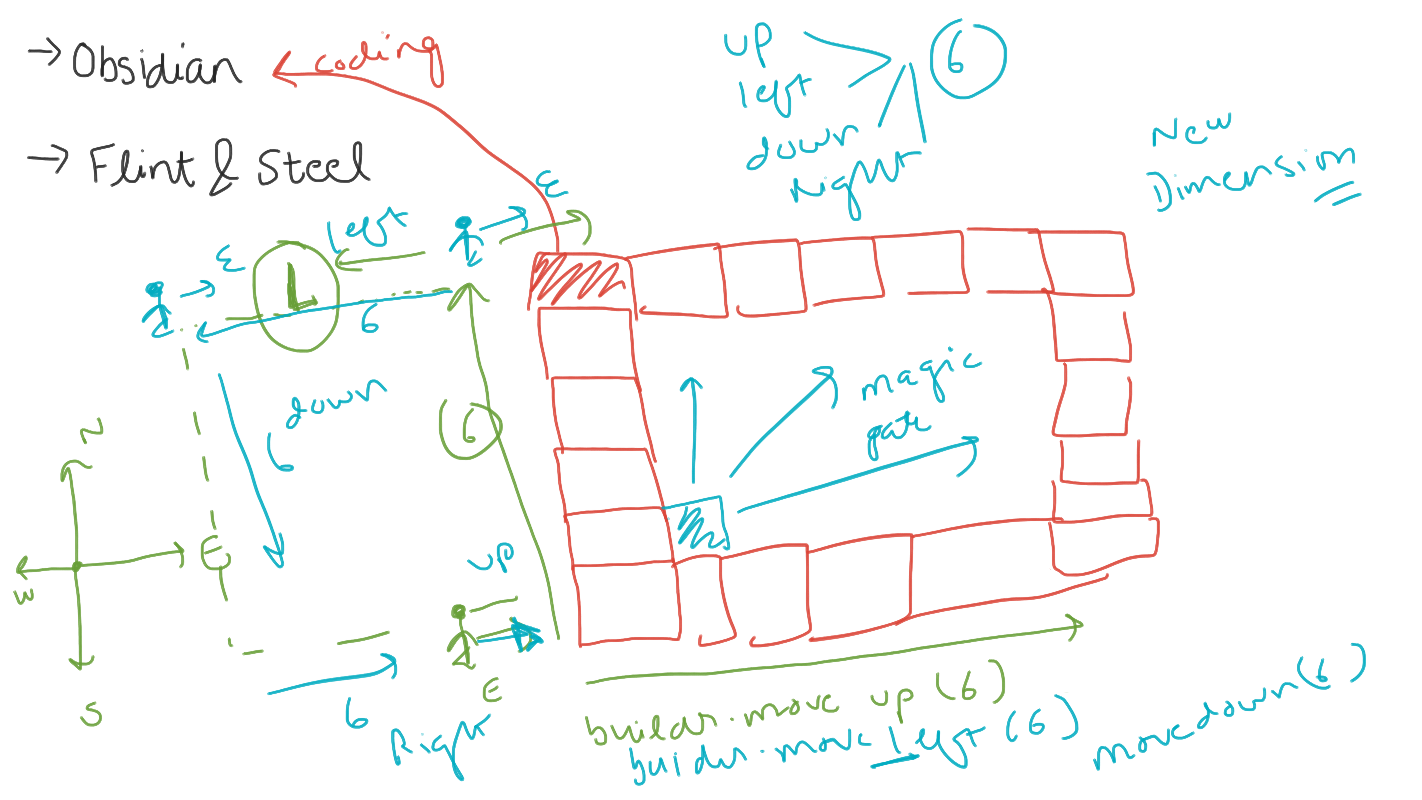 → Obsidian
coding
→ Flint & Steel
up
left
down
Right
6
New
Dimension
E
Left
E
L
6
6
down
6
magic
gate
N
W
E
S
up
E
6
Right
builder.move up (6)
builder.move left (6)
move down (6)